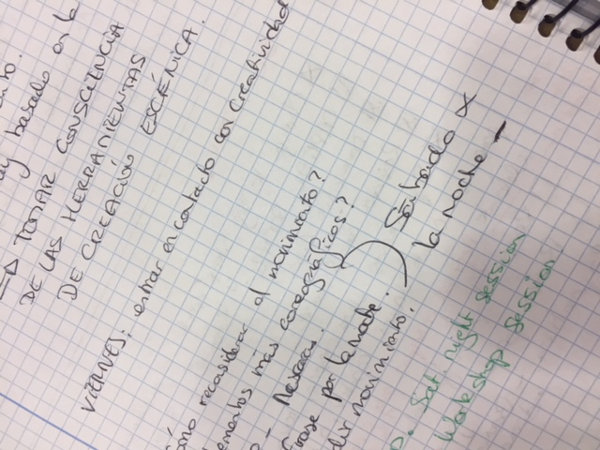 nto.
y basado en la
⇒ TOMAR CONSCIENCIA
DE LAS HERRAMIENTAS
DE CREACIÓN ESCÉNICA.
VIERNES: entrar en contacto con creatividad
ómo reconsiderar el movimiento?
ementos más coreográficos?
Frase por la noche.
dir movimiento.
Sábado x
la noche
Sat. night session
Workshop session